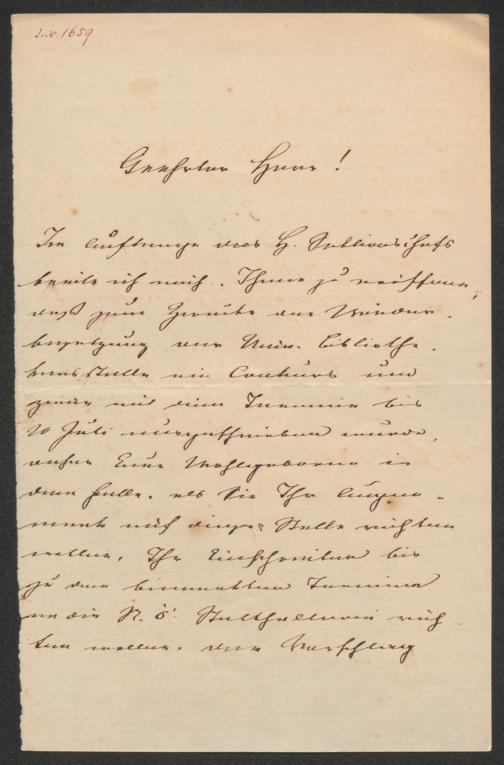 J.N. 1659
Geehrter Herr!
Im Auftrage des H. Sektionschefs
beeile ich mich, Ihnen zu eröffnen,
daß zum Zwecke der Wieder-
besetzung der Univ. Bibliothe-
karsstelle ein Conkurs und
zwar mit dem Termin bis
10 Juli ausgeschrieben wurde,
daher Euer Wohlgeboren in
dem Falle, als Sie Ihr Augen-
merk auf diese Stelle richten
wollen, Ihr Einschreiten bis
zu dem bemerkten Termine
an die N. ö. Statthalterei rich-
ten wollen. Der Vorschlag